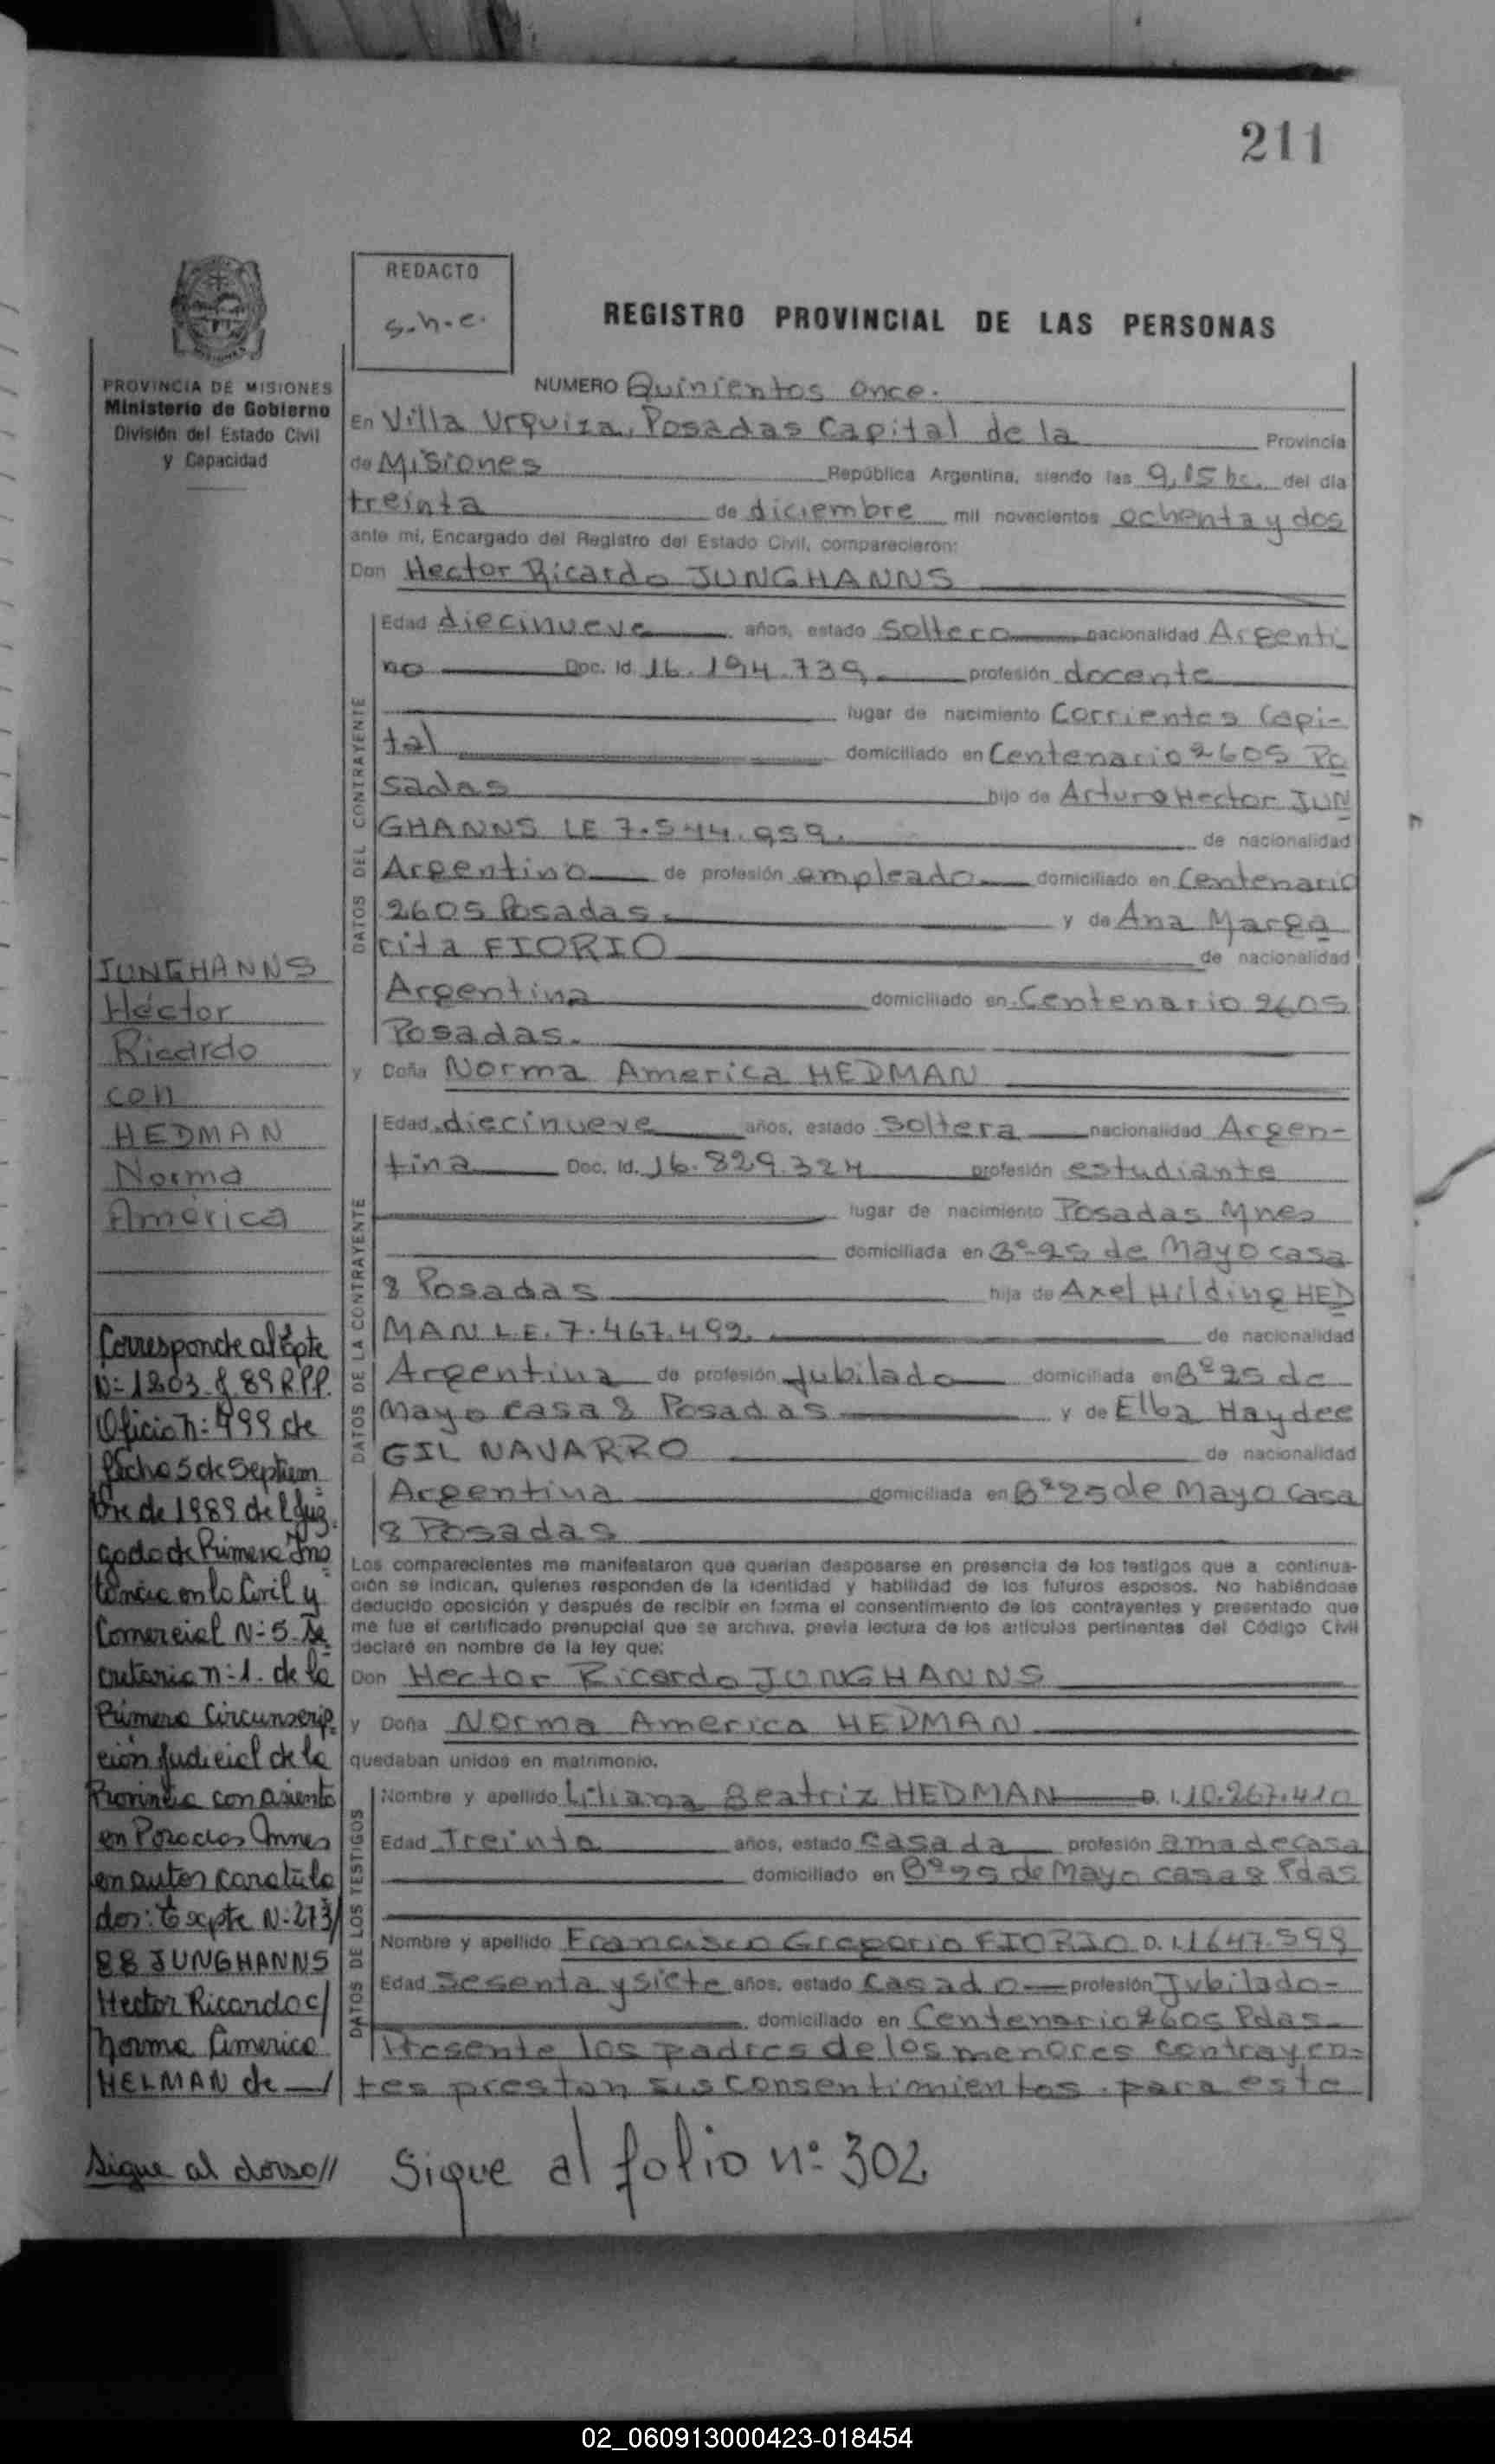 211
REDACTO
s.h.c.
REGISTRO PROVINCIAL DE LAS PERSONAS
PROVINCIA DE MISIONES
Ministerio de Gobierno
División del Estado Civil
y Capacidad
NUMERO Quinientos Once.
En Villa Urquiza, Posadas Capital de la Provincia
de Misiones República Argentina, siendo las 9,15 hs. del día
treinta de diciembre mil novecientos ochenta y dos
ante mí, Encargado del Registro del Estado Civil, comparecieron:
Don Hector Ricardo JUNGHANNS
DATOS DEL CONTRAYENTE
Edad diecinueve años, estado Soltero nacionalidad Argenti
no Doc. Id. 16.194.739 profesión docente
lugar de nacimiento Corrientes Capi-
tal domiciliado en Centenario 2605 Po
sadas hijo de Arturo Hector JUN
GHANNS LE 7.544.959. de nacionalidad
Argentino de profesión empleado domiciliado en Centenario
2605 Posadas. y de Ana Marga
rita FIORIO de nacionalidad
Argentina domiciliado en Centenario 2605
Posadas.
y Doña Norma America HEDMAN
DATOS DE LA CONTRAYENTE
Edad diecinueve años, estado Soltera nacionalidad Argen-
tina Doc. Id. 16.829.324 profesión estudiante
lugar de nacimiento Posadas Mnes
domiciliada en Bº-25 de Mayo casa
8 Posadas hija de Axel Hilding HED
MAN L.E. 7.467.492. de nacionalidad
Argentina de profesión Jubilado domiciliada en Bº 25 de
Mayo casa 8 Posadas y de Elba Haydee
GIL NAVARRO de nacionalidad
Argentina domiciliada en Bº 25 de Mayo Casa
8 Posadas
Los comparecientes me manifestaron que querían desposarse en presencia de los testigos que a continua-
ción se indican, quienes responden de la identidad y habilidad de los futuros esposos. No habiéndose
deducido oposición y después de recibir en forma el consentimiento de los contrayentes y presentado que
me fue el certificado prenupcial que se archiva, previa lectura de los artículos pertinentes del Código Civil
declaré en nombre de la ley que:
Don Hector Ricardo JUNGHANNS
y Doña Norma America HEDMAN
quedaban unidos en matrimonio.
DATOS DE LOS TESTIGOS
Nombre y apellido Liliana Beatriz HEDMAN D. I. 10.267.410
Edad Treinta años, estado Casada profesión ama de casa
domiciliado en Bº 25 de Mayo casa 8 Pdas
Nombre y apellido Francisco Gregorio FIORIO D. I. 1647.599
Edad Sesenta y siete años, estado Casado profesión Jubilado-
domiciliado en Centenario 2605 Pdas.
Presente los padres de los menores contrayen-
tes prestan sus consentimientos para este
Sigue al folio nº 302
JUNGHANNS
Héctor
Ricardo
con
HEDMAN
Norma
América
Corresponde al Expte
Nº 1203-J 89 R.P.P.
Oficio nº 499 de
fecha 5 de Septiem
bre de 1989 del Juz
gado de Primera Ins
tancia en lo Civil y
Comercial Nº 5. Se
cretaria nº 1. de la
Primera Circunscrip
ción Judicial de la
Provincia con asiento
en Posadas Mnes
en autos caratula
dos: Expte Nº 273/
88 JUNGHANNS
Hector Ricardo c/
Norma America
HELMAN de
Sigue al dorso//
02_060913000423-018454